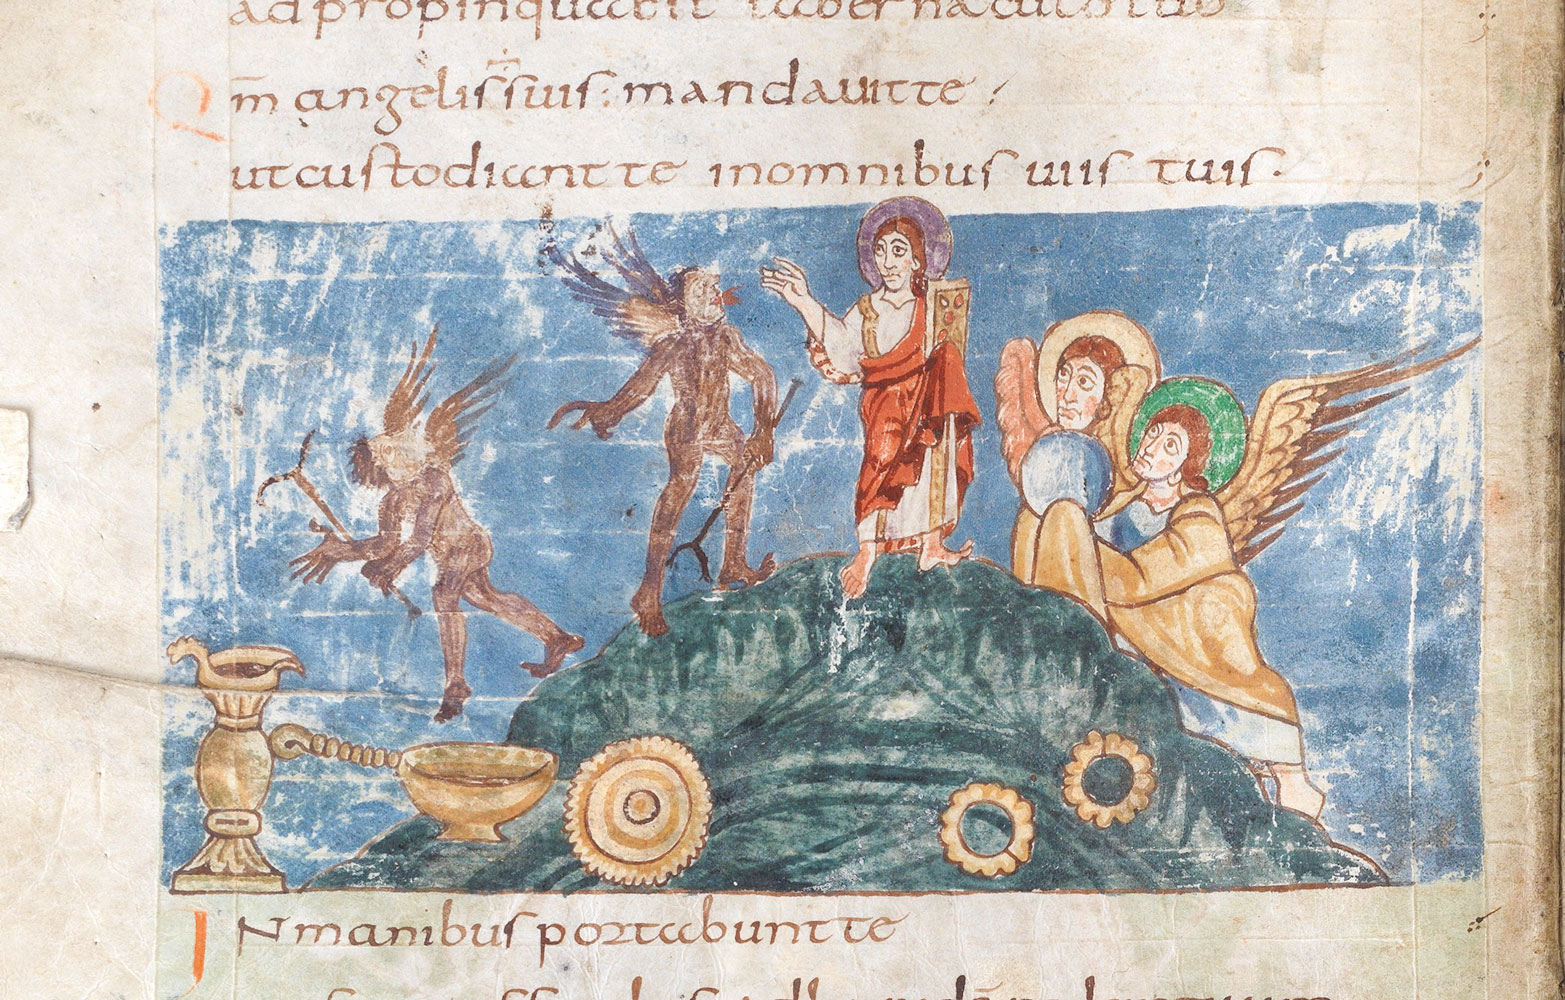 adpropinquabit tabernaculo tuo
Qm̄ angelis suis: mandavit te
ut custodiant te in omnibus viis tuis.
IN manibus portabunt te